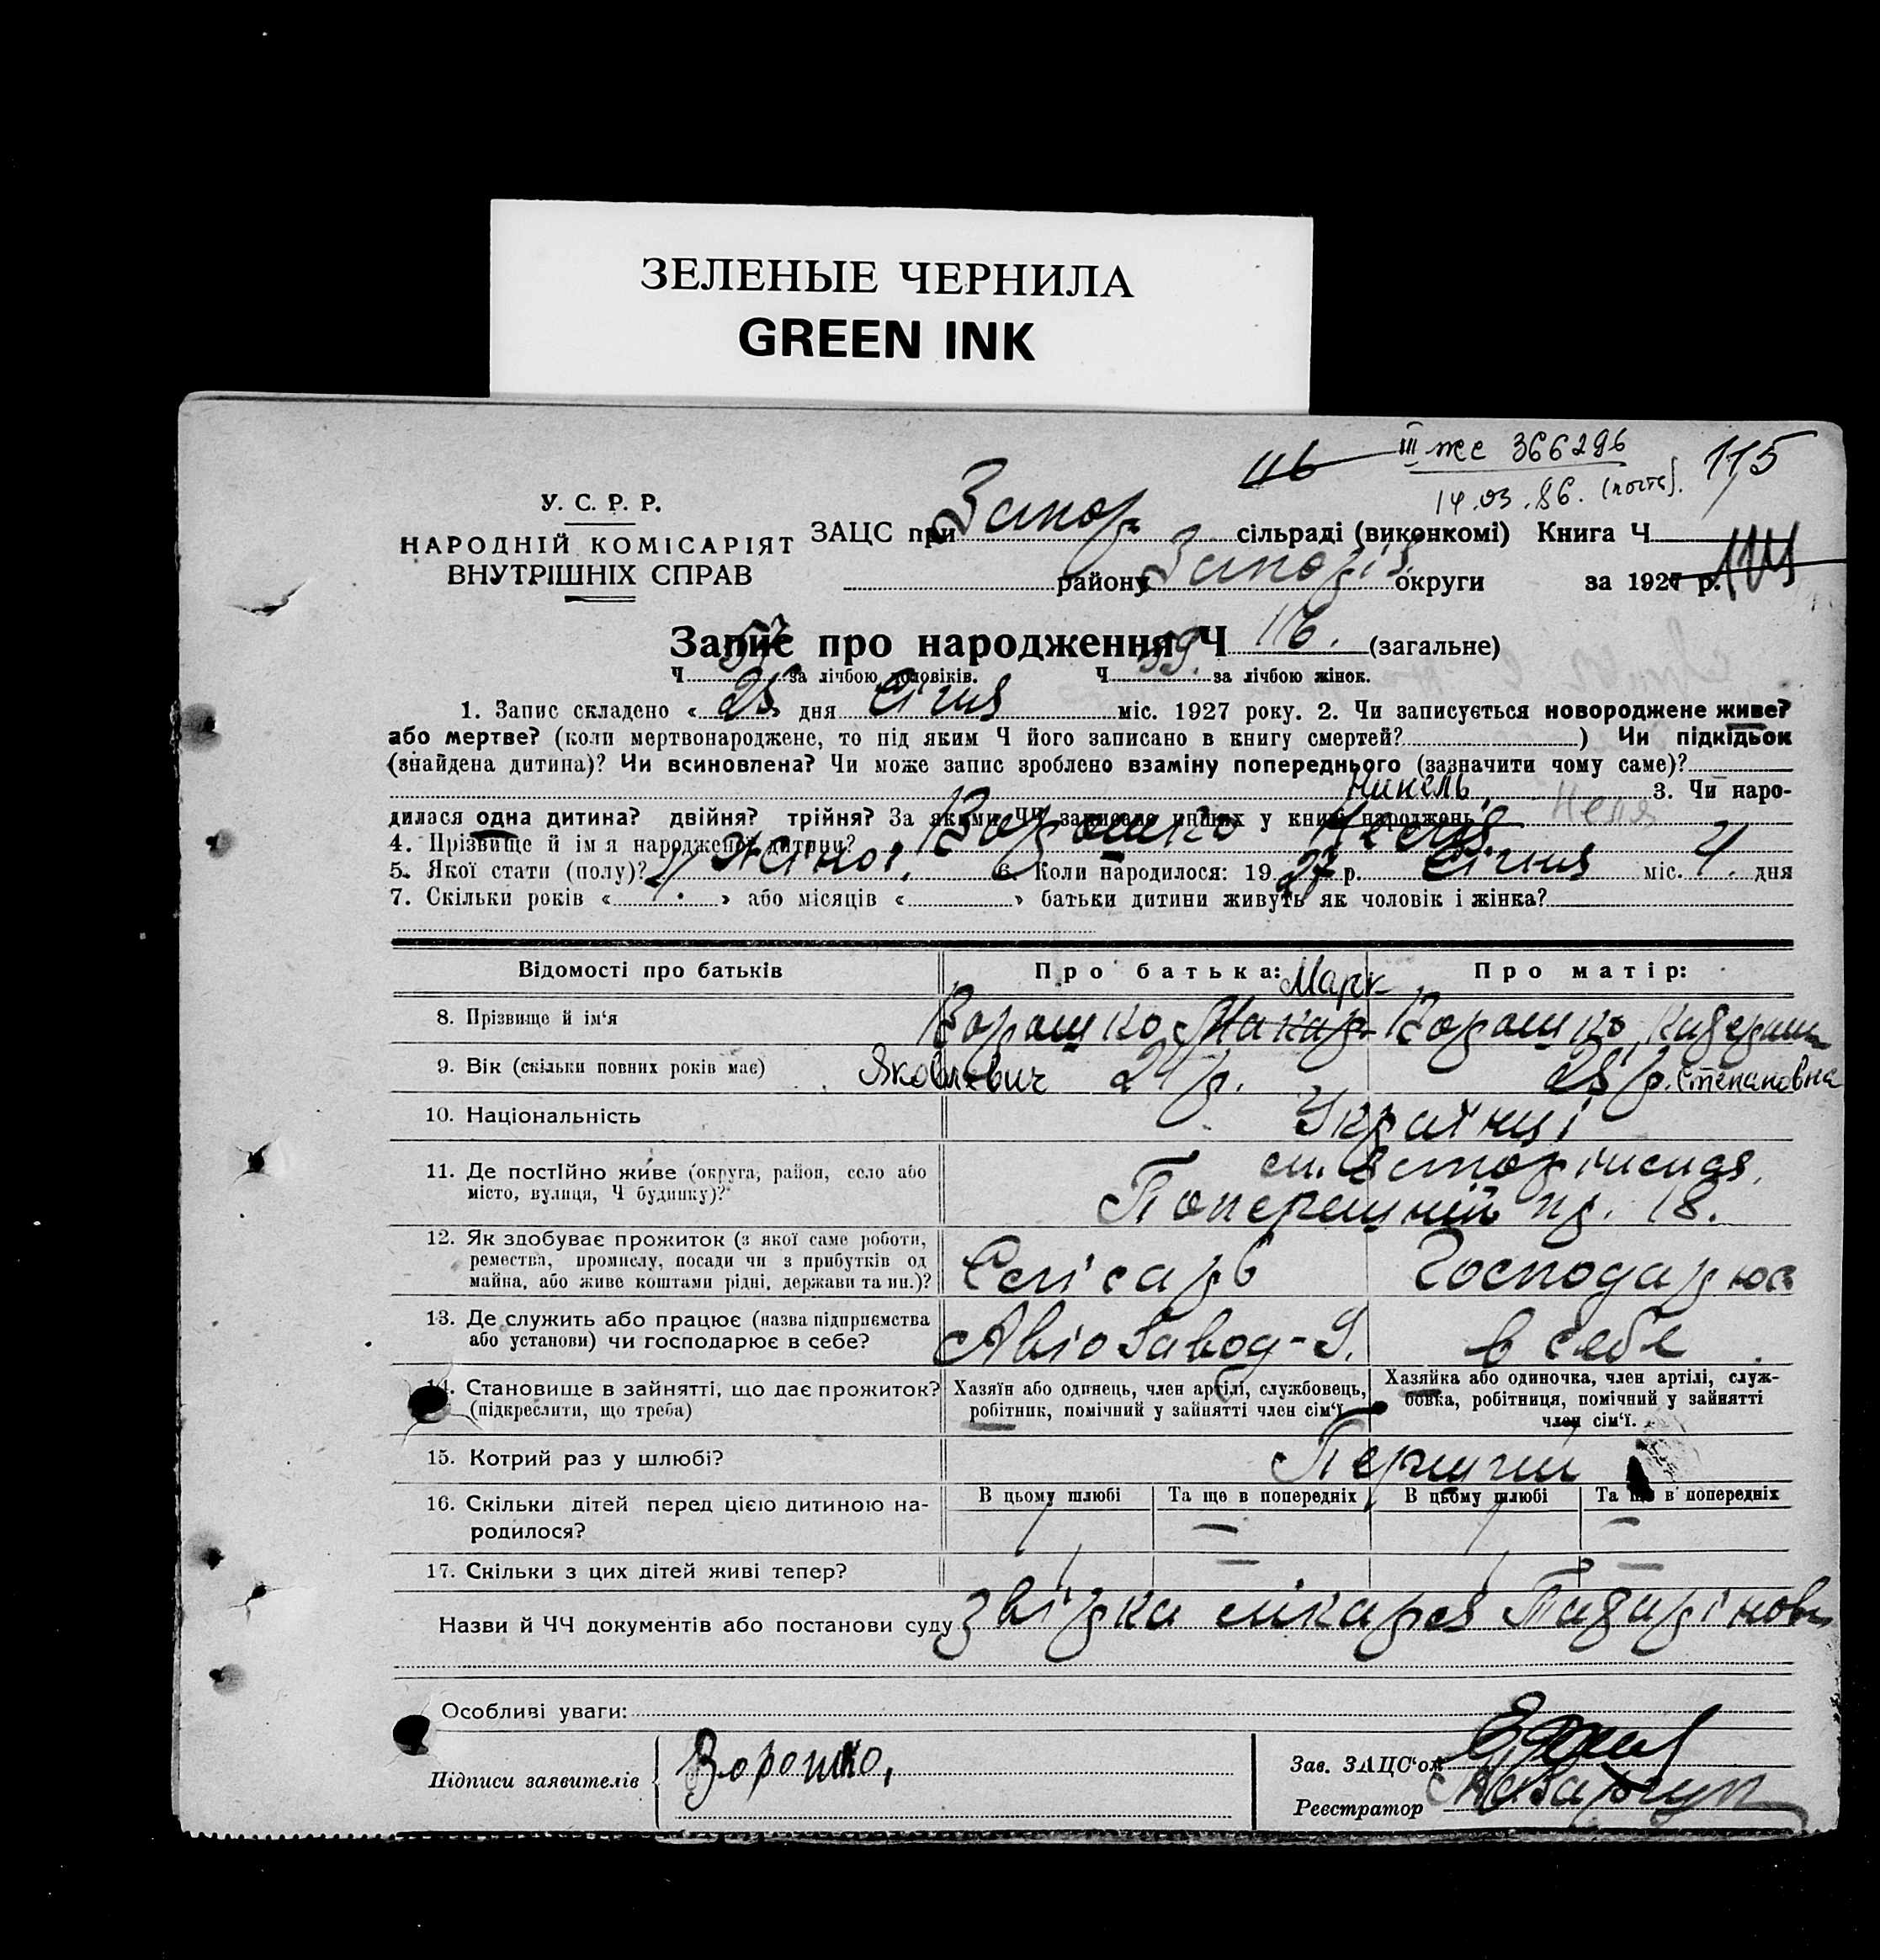 ЗЕЛЕНЫЕ ЧЕРНИЛА
GREEN INK
116
III же 366296
115
14.03.86.
У. С. Р. Р.
НАРОДНІЙ КОМІСАРІЯТ
ВНУТРІШНІХ СПРАВ
ЗАЦС при Запор. сільраді (виконкомі) Книга Ч
району Запоріз. округи за 1927 р. 114
Запис про народження Ч 116. (загальне)
Ч 57 за лічбою чоловіків. Ч 59. за лічбою жінок.
1. Запис складено « 25 » дня Січня міс. 1927 року. 2. Чи записується новороджене живе?
або мертве? (коли мертвонароджене, то під яким Ч його записано в книгу смертей? ) Чи підкідьок
(знайдена дитина)? Чи всиновлена? Чи може запис зроблено взаміну попереднього (зазначити чому саме)?
Нинель 3. Чи наро-
дилася одна дитина? двійня? трійня? За якими ЧЧ записано инших у книгі народжень Неля
4. Прізвище й ім я народженої дитини? Ворошко Неля
5. Якої стати (полу)? Жіночої. 6. Коли народилося: 19 27 р. Січня міс. 4. дня
7. Скільки років « 4. » або місяців « » батьки дитини живуть як чоловік і жінка?
Відомості про батьків Про батька: Про матір:
Марк
8. Прізвище й ім‘я Ворошко Макар Ворошко Катерина
9. Вік (скільки повних років має) Яковлевич 24 р. 25 р. Степановна
10. Національність Українці
11. Де постійно живе (округа, район, село або
місто, вулиця, Ч будинку)?
Поперешній пр. 18.
12. Як здобуває прожиток (з якої саме роботи,
ремества, промислу, посади чи з прибутків од
майна, або живе коштами рідні, держави та ин.)?
Слісарь Господарює
13. Де служить або працює (назва підприємства
або установи) чи господарює в себе?
Авіо Завод-9. в себе
14. Становище в зайнятті, що дає прожиток?
(підкреслити, що треба)
Хазяїн або одинець, член артілі, службовець,
робітник, помічний у зайнятті член сім‘ї.
Хазяйка або одиночка, член артілі, служ-
бовка, робітниця, помічний у зайнятті
член сім‘ї.
15. Котрий раз у шлюбі? Перший
16. Скільки дітей перед цією дитиною на-
родилося?
В цьому шлюбі Та ще в попередніх В цьому шлюбі Та ще в попередніх
1 — 1 —
17. Скільки з цих дітей живі тепер? 1 — 1 —
Назви й ЧЧ документів або постанови суду звірка лікаря
Особливі уваги:
Підписи заявителів Ворошко,
Зав. ЗАЦС‘ом
Реєстратор